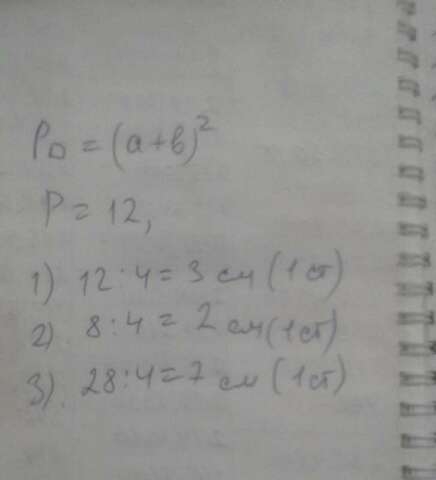 P□ = (a+b)²
P = 12,
1) 12:4=3 см (1 ст)
2) 8:4 = 2 см (1 ст)
3). 28:4=7 см (1 ст)